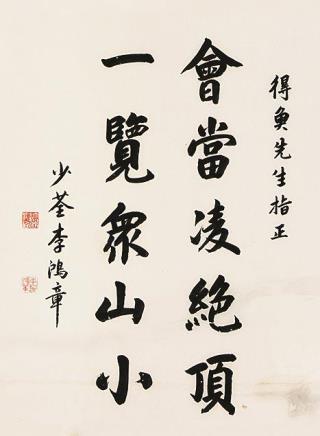 得魚先生指正
會當凌絕頂
一覽衆山小
少荃李鴻章